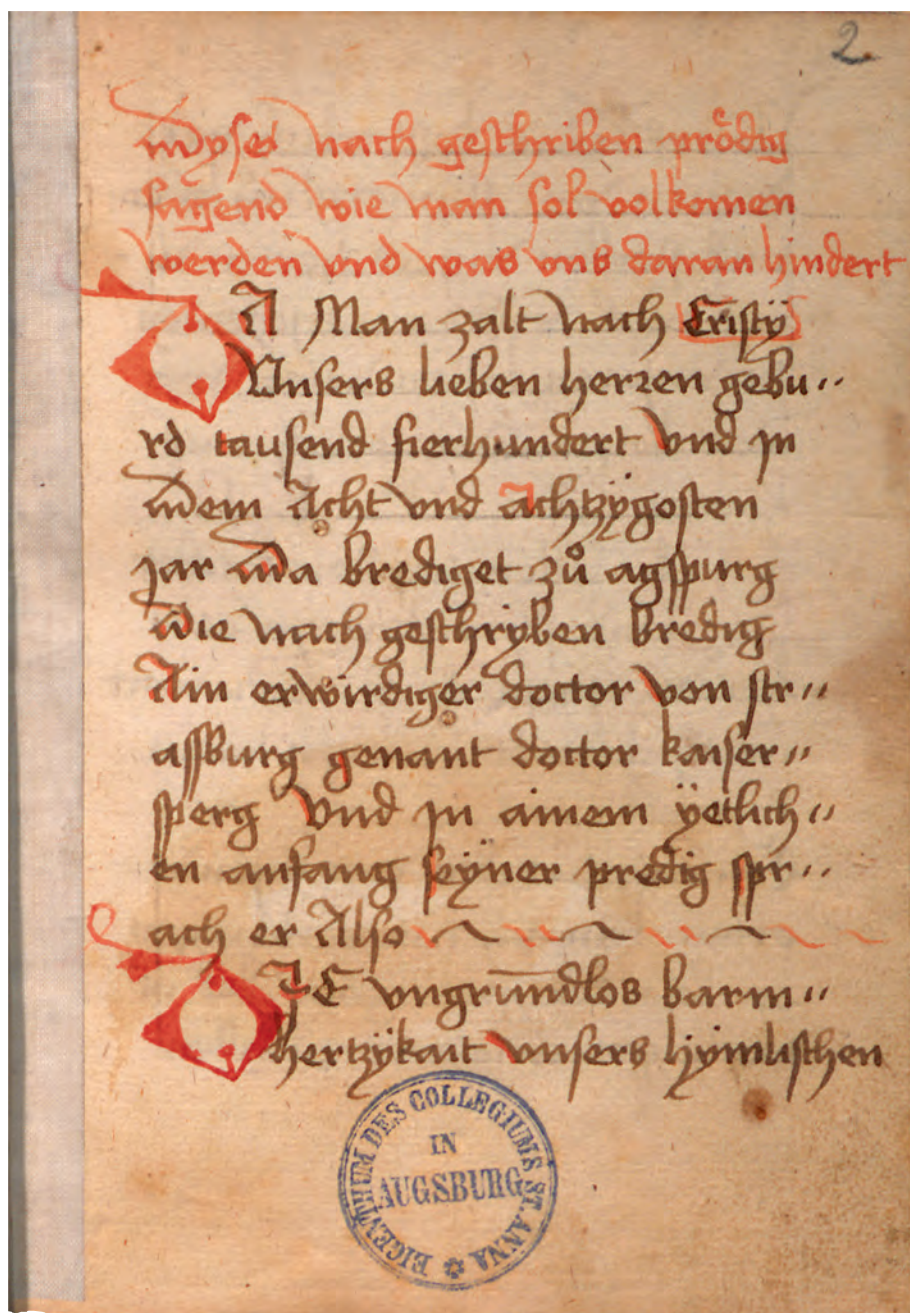 2
Dyse nach geschriben prödig
sagend wie man sol volkomen
werden vnd was vns daran hindert
DA Man zalt nach Cristÿ
Vnsers lieben herren gebu〃
rd tausend fierhundert vnd jn
dem Acht vnd achtzÿgosten
jar da brediget zů agspurg
die nach geschryben bredig
Ain erwirdiger doctor von str〃
assburg genant doctor kaiser〃
sperg vnd jn ainem ÿetlich〃
en anfang seÿner predig spr〃
ach er Also
DJE vngrundlos barm〃
hertzÿkait vnsers hÿmlischen
EIGENTHUM DES COLLEGIUMS ST. ANNA
IN
AUGSBURG